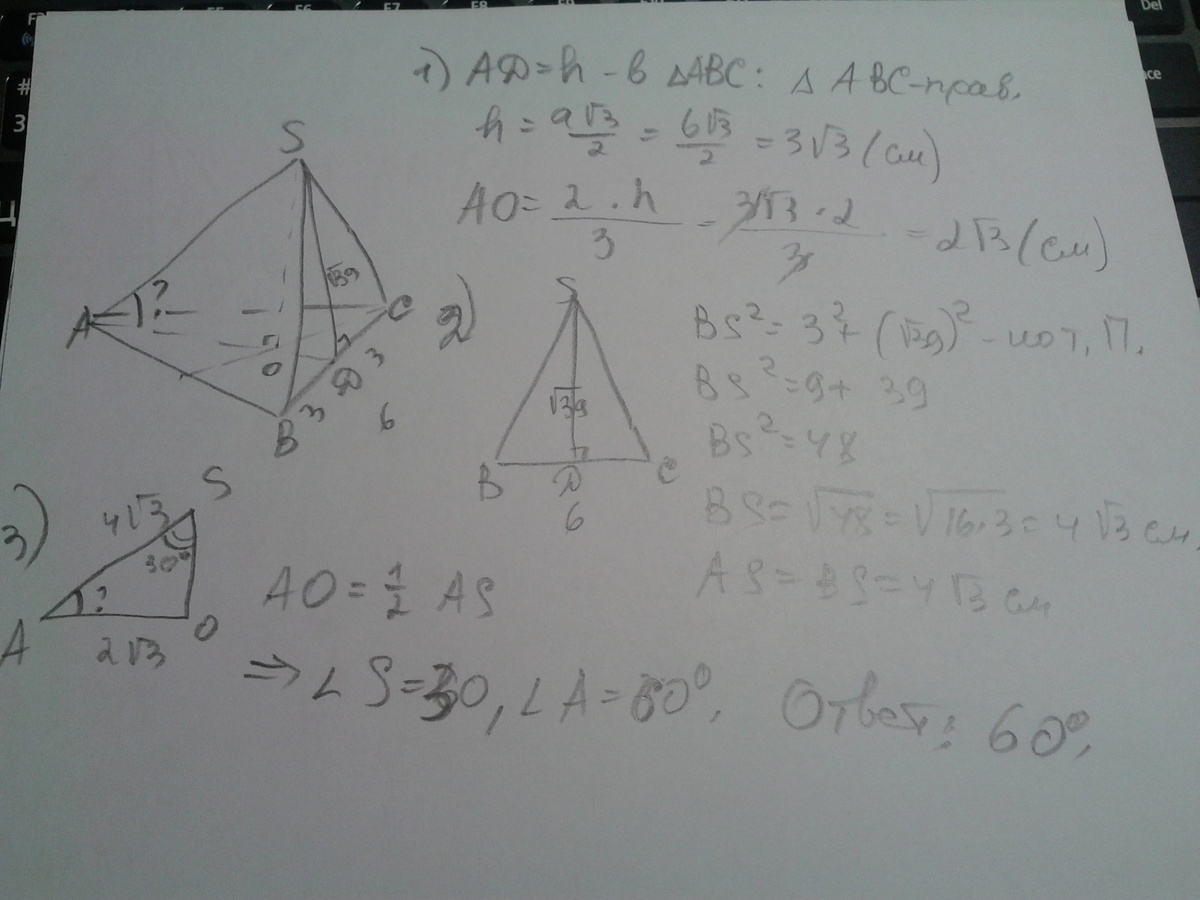 1) AD = h - в ΔABC: Δ ABC-прав.
h = a√3/2 = 6√3/2 = 3√3 (см)
AO = 2·h/3 = 3√3·2/3 = 2√3 (см)
S
A
?
√39
C
O
D
3
3
B
6
2)
S
√39
B
D
C
6
BS² = 3² + (√39)² - по т. П.
BS² = 9 + 39
BS² = 48
BS = √48 = √16·3 = 4√3 см.
AS = BS = 4√3 см
3)
S
4√3
30°
?
A
2√3
O
AO = 1/2 AS
⇒ ∠S = 30, ∠A = 60°.
Ответ: 60°.
Del
F7
F8
#
3
Ц